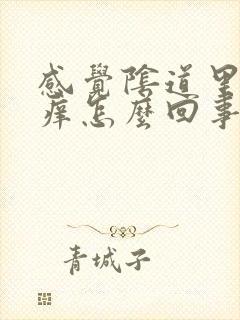 感覺陰道里
癢怎麼回事
青城子